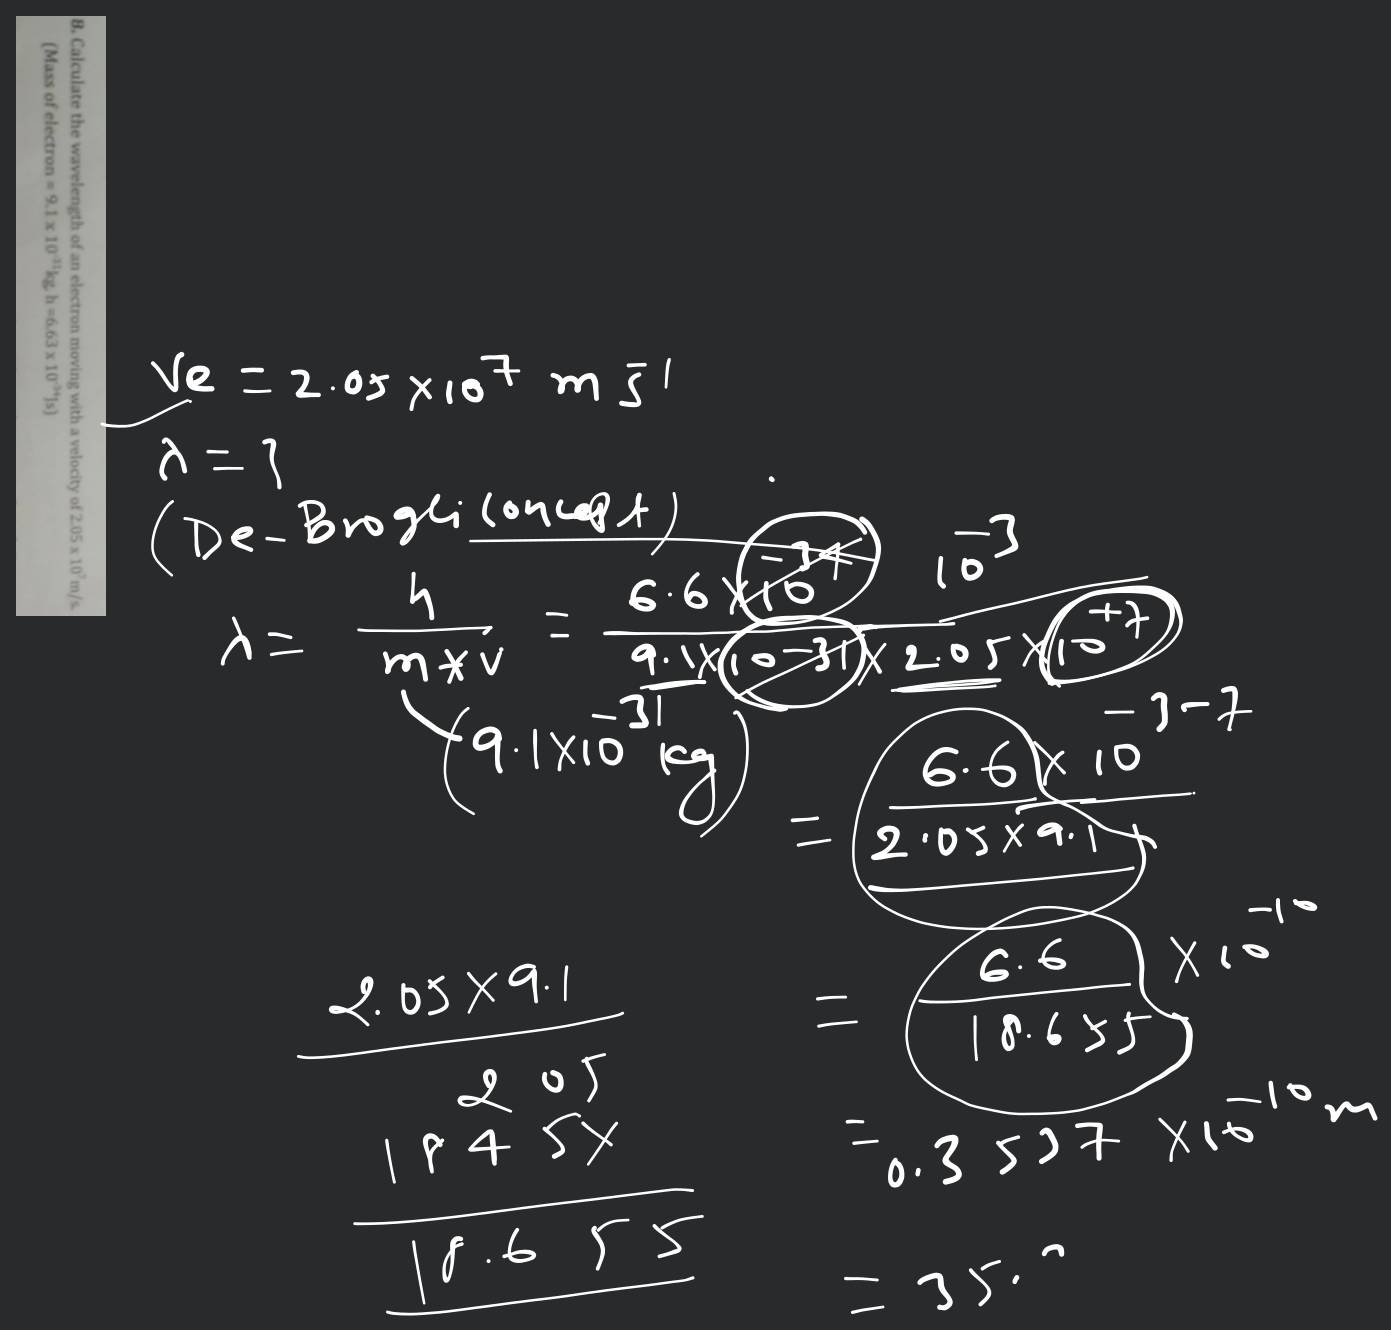 8. Calculate the wavelength of an electron moving with a velocity of 2.05 x 10⁷m/s.
(Mass of electron = 9.1 x 10⁻³¹kg, h =6.63 x 10⁻³⁴Js)
Ve = 2.05 × 10⁷ m s⁻¹
λ = ?
(De-Brogli concept)
λ = h / m × v = 6.6 × 10⁻³⁴ / 9.1 × 10⁻³¹ × 2.05 × 10⁺⁷ 10⁻³
(9.1 × 10⁻³¹ kg)
= 6.6 × 10⁻³⁻⁷ / 2.05 × 9.1
= 6.6 / 18.655 × 10⁻¹⁰
= 0.3537 × 10⁻¹⁰ m
= 35.
2.05 × 9.1
205
1845×
18.655